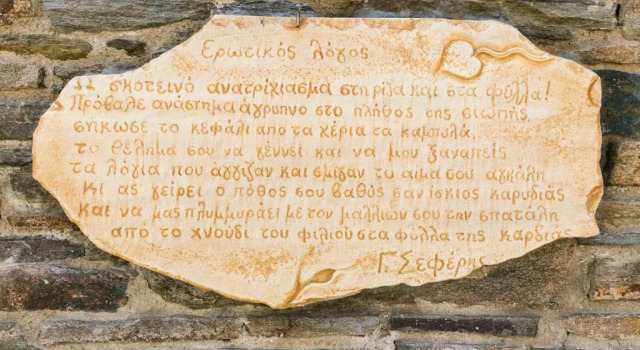 Ερωτικός λόγος
Ω σκοτεινό ανατρίχιασμα στη ρίζα και στα φύλλα!
Πρόβαλε ανάστημα άγρυπνο στο πλήθος της σιωπής
σήκωσε το κεφάλι από τα χέρια τα καμπυλά
το θέλημά σου να γέννει και να μου ξαναπείς
τα λόγια που άγγιζαν και σμίγαν το αίμα σου αγκάλη
κι ας γείρει ο πόθος σου βαθύς σαν ίσκιος καρυδιάς
και να μας πλυμμυράει με τον μαλλιών σου την σπατάλη
από το χνούδι του φιλιού στα φύλλα της καρδιάς
Γ. Σεφέρης